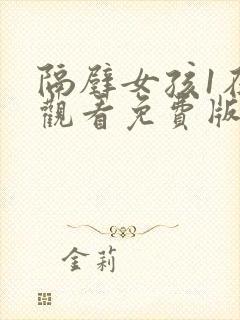 隔壁女孩1在
觀看免費版
金莉